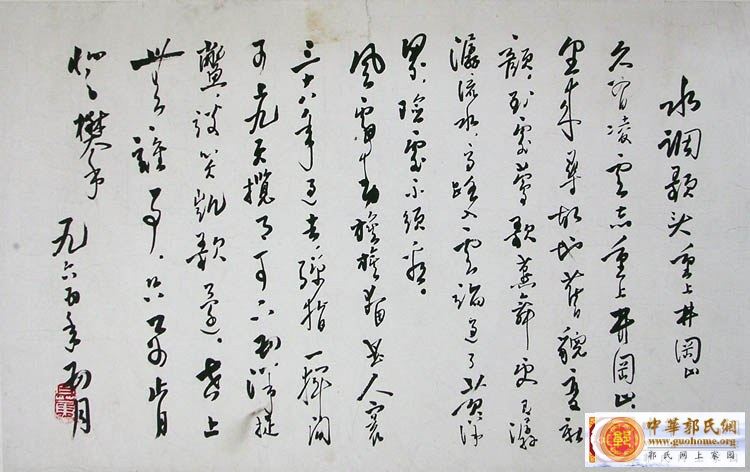 水调歌头 重上井岡山
久有凌云志重上井岡山
里来寻故地旧貌变新
颜,到处莺歌燕舞更有潺
潺流水,高路入云端过了黄洋
界,险处不须看。
风雷动旌旗奋是人寰
三十八年过去弹指一挥间
可上九天揽月可下五洋捉
鳖,谈笑凯歌还。世上
无难事,只要肯
攀 九六五年五月
中華郭氏網
www.guohome.org
郭氏网上家园